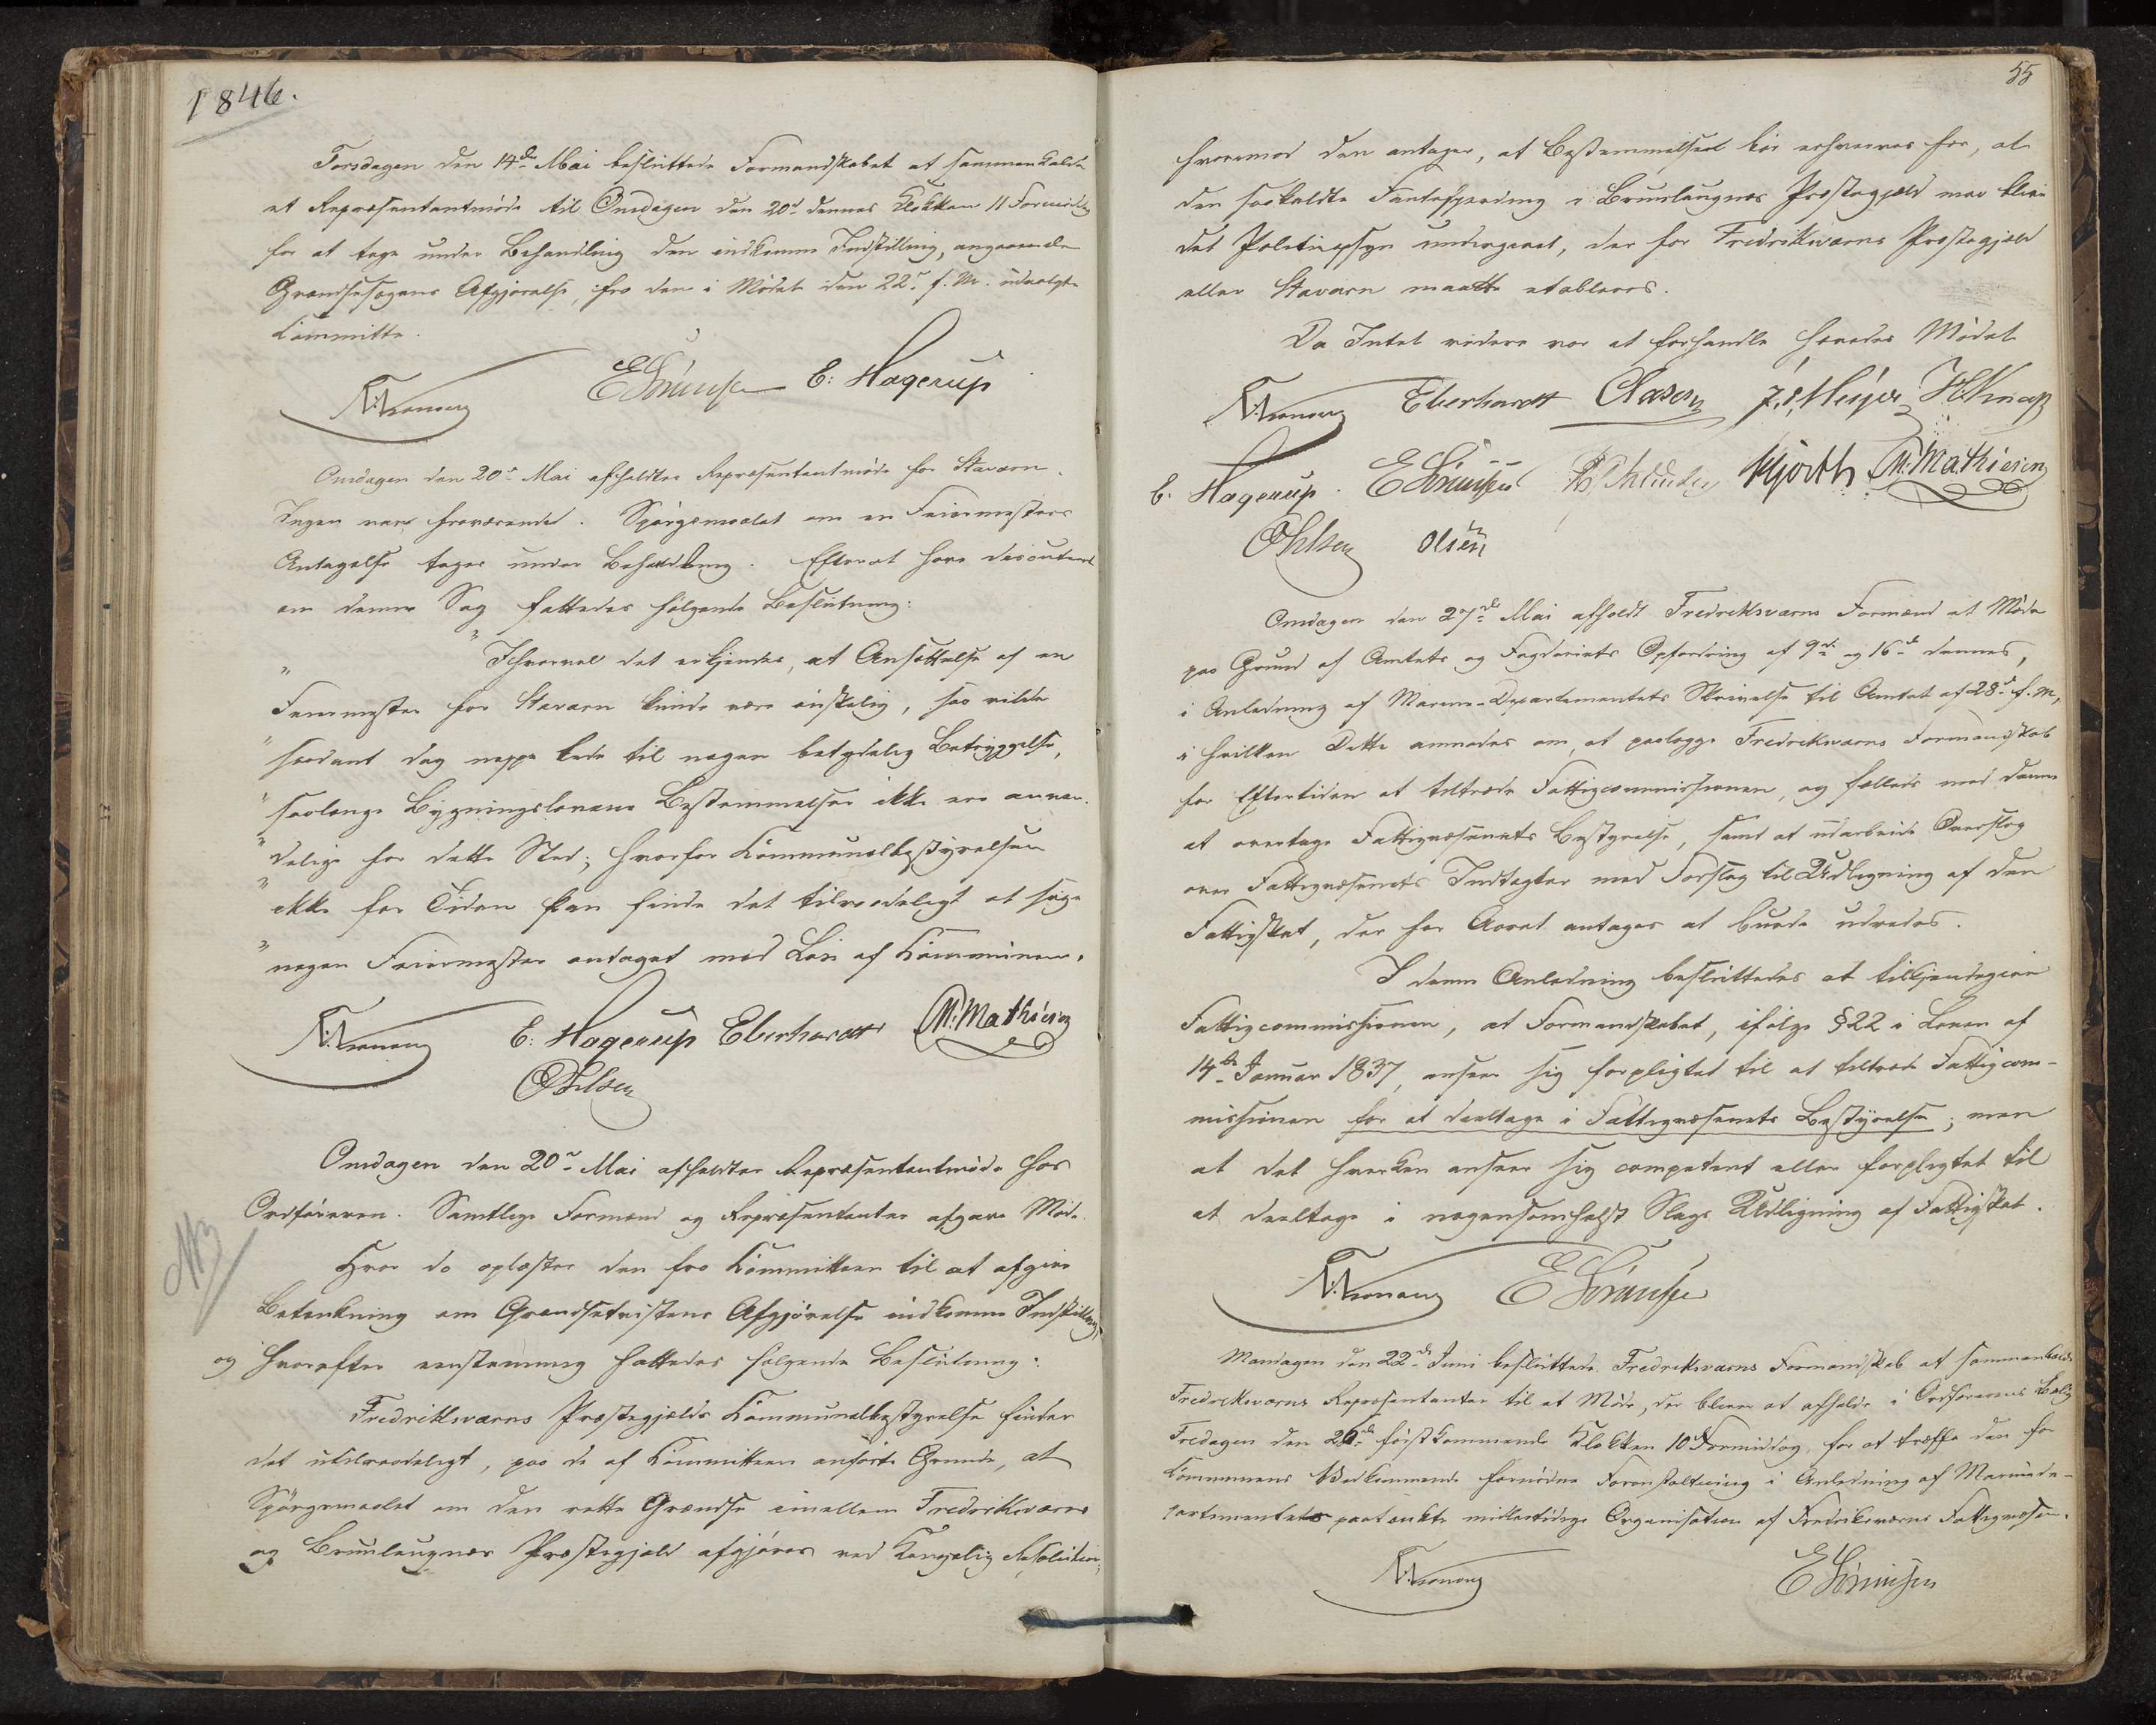 1846.
Torsdagen den 14de Mai besluttede Formandskabet at sammenkalde
et Repræsentantmöde til Onsdagen den 20d dennes Klokken 11 Formiddag
for at tage under Behandling den indkomne Indstilling, angaaende
Grændsesagens Afgjörelse, fra den i Mödet den 22d f. M. udvalgte
Kommitte.
E Sörensen E: Hagerup
Onsdagen den 20de Mai afholdtes Repræsentantmöde for Staværn.
Ingen vare fraværende. Spörgsmaalet om en Feiermesters
Antagelse toges under Behandling. Efter at have discuteret
om denne Sag fattedes fölgende Beslutning:
" "Ihvorvel det erkjendes, at Ansættelse af en
Feiermester for Staværn kunde være önskelig, saa vilde
" saadant dog neppe lede til nogen betydelig Betryggelse,
" saalænge Bygningslovens Bestemmelser ikke ere anven-
" delige for dette Sted; hvorfor Kommunalbestyrelsen
" ikke for Tiden kan finde det tilraadeligt at söge
" nogen Feiermester antaget med Lön af Kommunen.
E: Hagerup Eberhardt M. Mathiesen
Ohlsen
Onsdagen den 20de Mai afholdtes Repræsentantmöde hos
Ordföreren. Samtlige Formænd og Repræsentanter afgave Möde.
Hvor da oplæstes den fra Kommitteen til at afgive
Betænkning om Grændsetvistens Afgjörelse indkomne Indstilling,
og hvorefter eenstemmig fattedes fölgende Beslutning:
Fredriksværns Præstegjelds Kommunalbestyrelse finder
det utilraadeligt, paa de af Kommitteen anförte Grunde, at
Spörgsmaalet om den rette Grændse imellem Fredriksværns
og Brunlaugnæs Præstegjeld afgjöres ved Kongelig Resolution;
55
hvorimod den antager, at Bestemmelsen bör erhverves for, at
den saakaldte Fantespærding i Brunlaugnæs Præstegjeld maa blive
det Politiopsyn undergivet, der for Fredriksværns Præstegjeld
eller Staværn maatte etableres.
Da Intet videre var at forhandle hævedes Mödet
Eberhardt Clasen J. S. Meyer
E. Hagerup. E Sörensen Hjorth M. Mathiesen
Ohlsen Olsen
Onsdagen den 27de Mai afholdt Fredriksværns Formænd et Möde
paa Grund af Amtets og Fogderiets Opfordring af 9de og 16de dennes,
i Anledning af Marine-Departementets Skrivelse til Amtet af 28d f. M,
i hvilken Dette anmodes om, at paalægge Fredriksværns Formandskab
for Eftertiden at tiltræde Fattigcommissionen, og fælleds med denne
at overtage Fattigvæsenets Bestyrelse, samt at udarbeide Overslag
over Fattigvæsenets Indtægter med Forslag til Udligning af den
Fattigskat, der for Aaret antages at burde udredes.
I denne Anledning besluttedes at tilkjendegive
Fattigcommissionen, at Formandskabet, ifölge § 22 i Loven af
14de Januar 1837, anseer sig forpligtet til at tiltræde Fattigcom-
missionen for at deeltage i Fattigvæsenets Bestyrelse; men
at det hverken anseer sig competent eller forpligtet til
at deeltage i nogensomhelst Slags Udligning af Fattigskat.
E Sörensen
Mandagen den 22de Juni besluttede Fredriksværns Formandskab at sammenkalde
Fredriksværns Repræsentanter til et Möde, der bliver at afholde i Ordförerens Bolig
Fredagen den 26de förstkommende Klokken 10 Formiddag, for at træffe den for
Kommunens Vedkommende fornödne Foranstaltning i Anledning af Marinede-
partementets paatænkte midlertidige Organisation af Fredriksværns Fattigvæsen.
E Sörensen